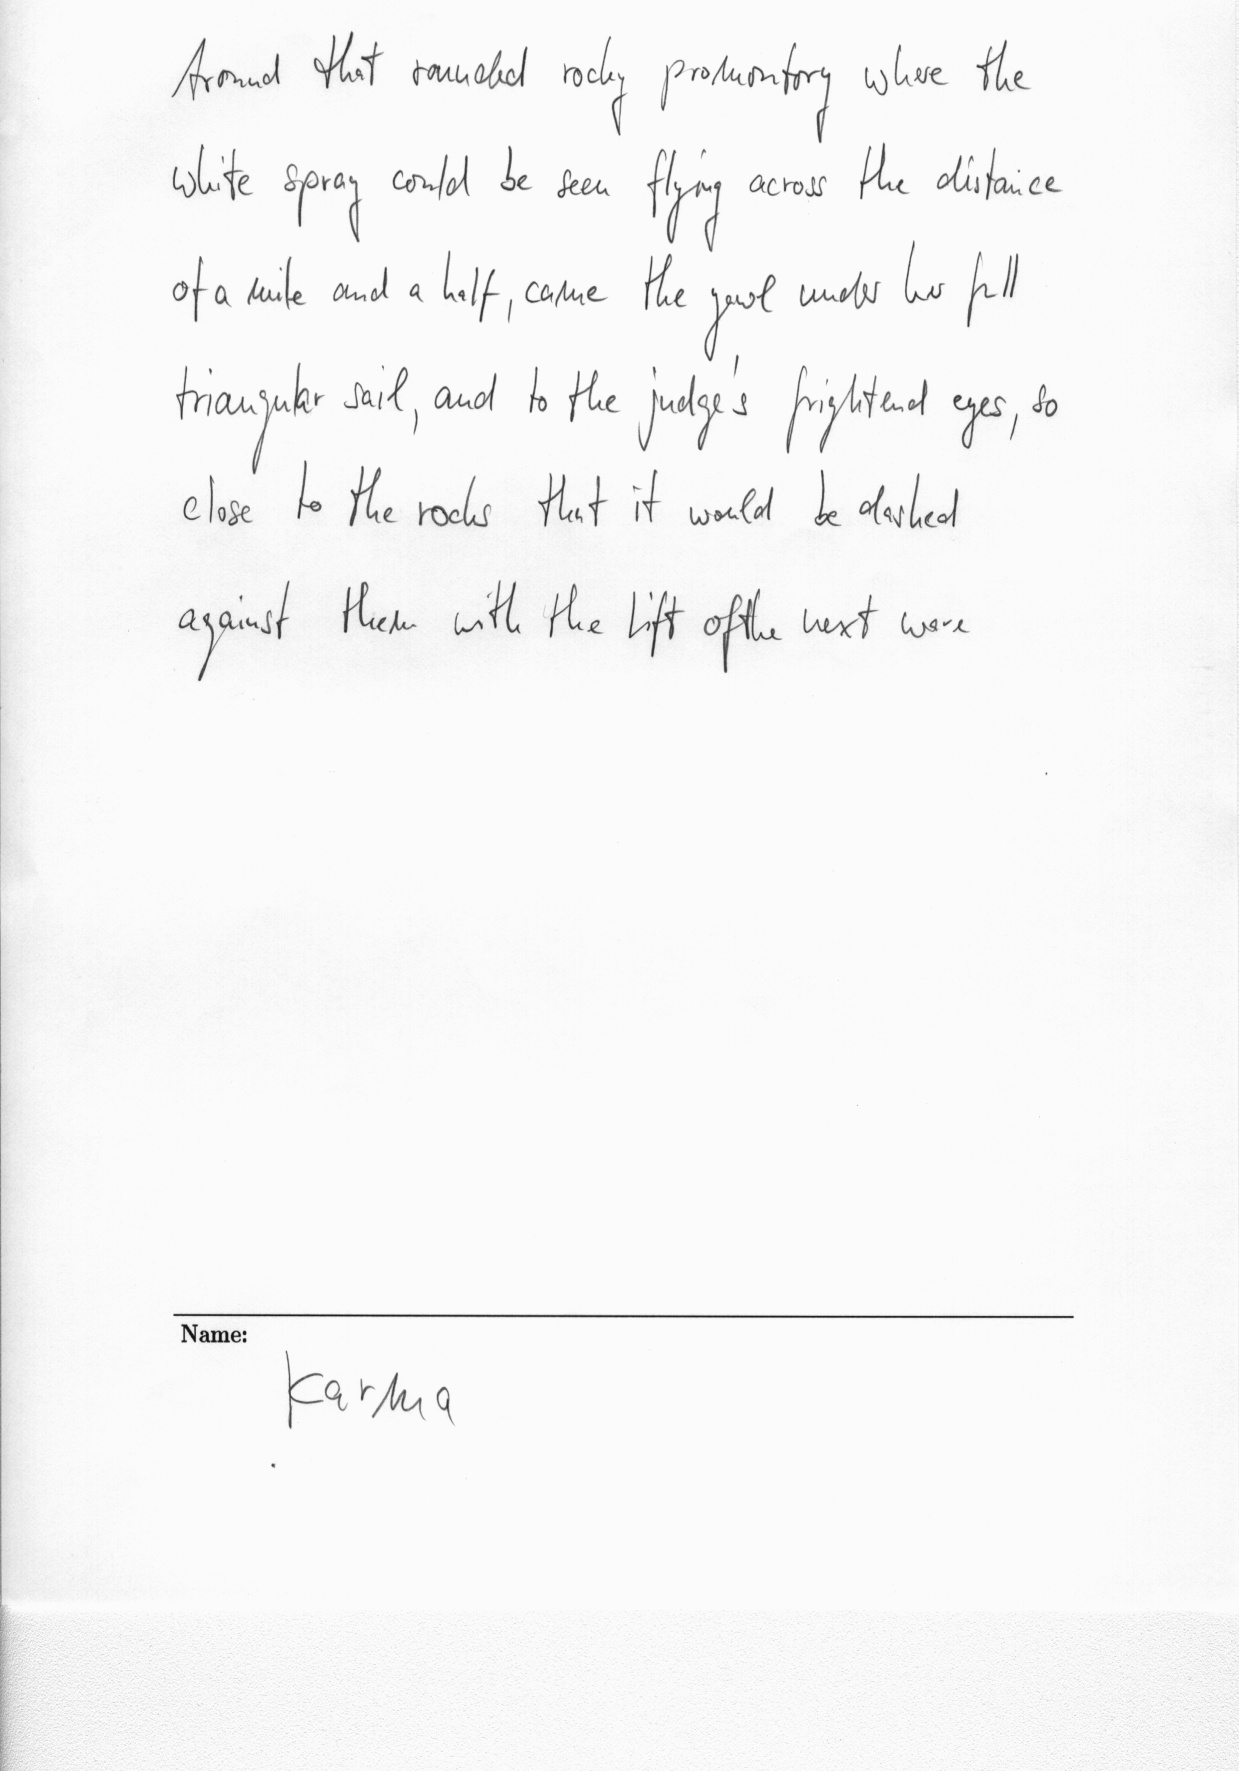 Around that rounded rocky promontory where the
white spray could be seen flying across the distance
of a mile and a half, came the yawl under her full
triangular sail, and to the judge's frightend eyes, so
close to the rocks that it would be dashed
against them with the lift of the next wave
Name:
Karma